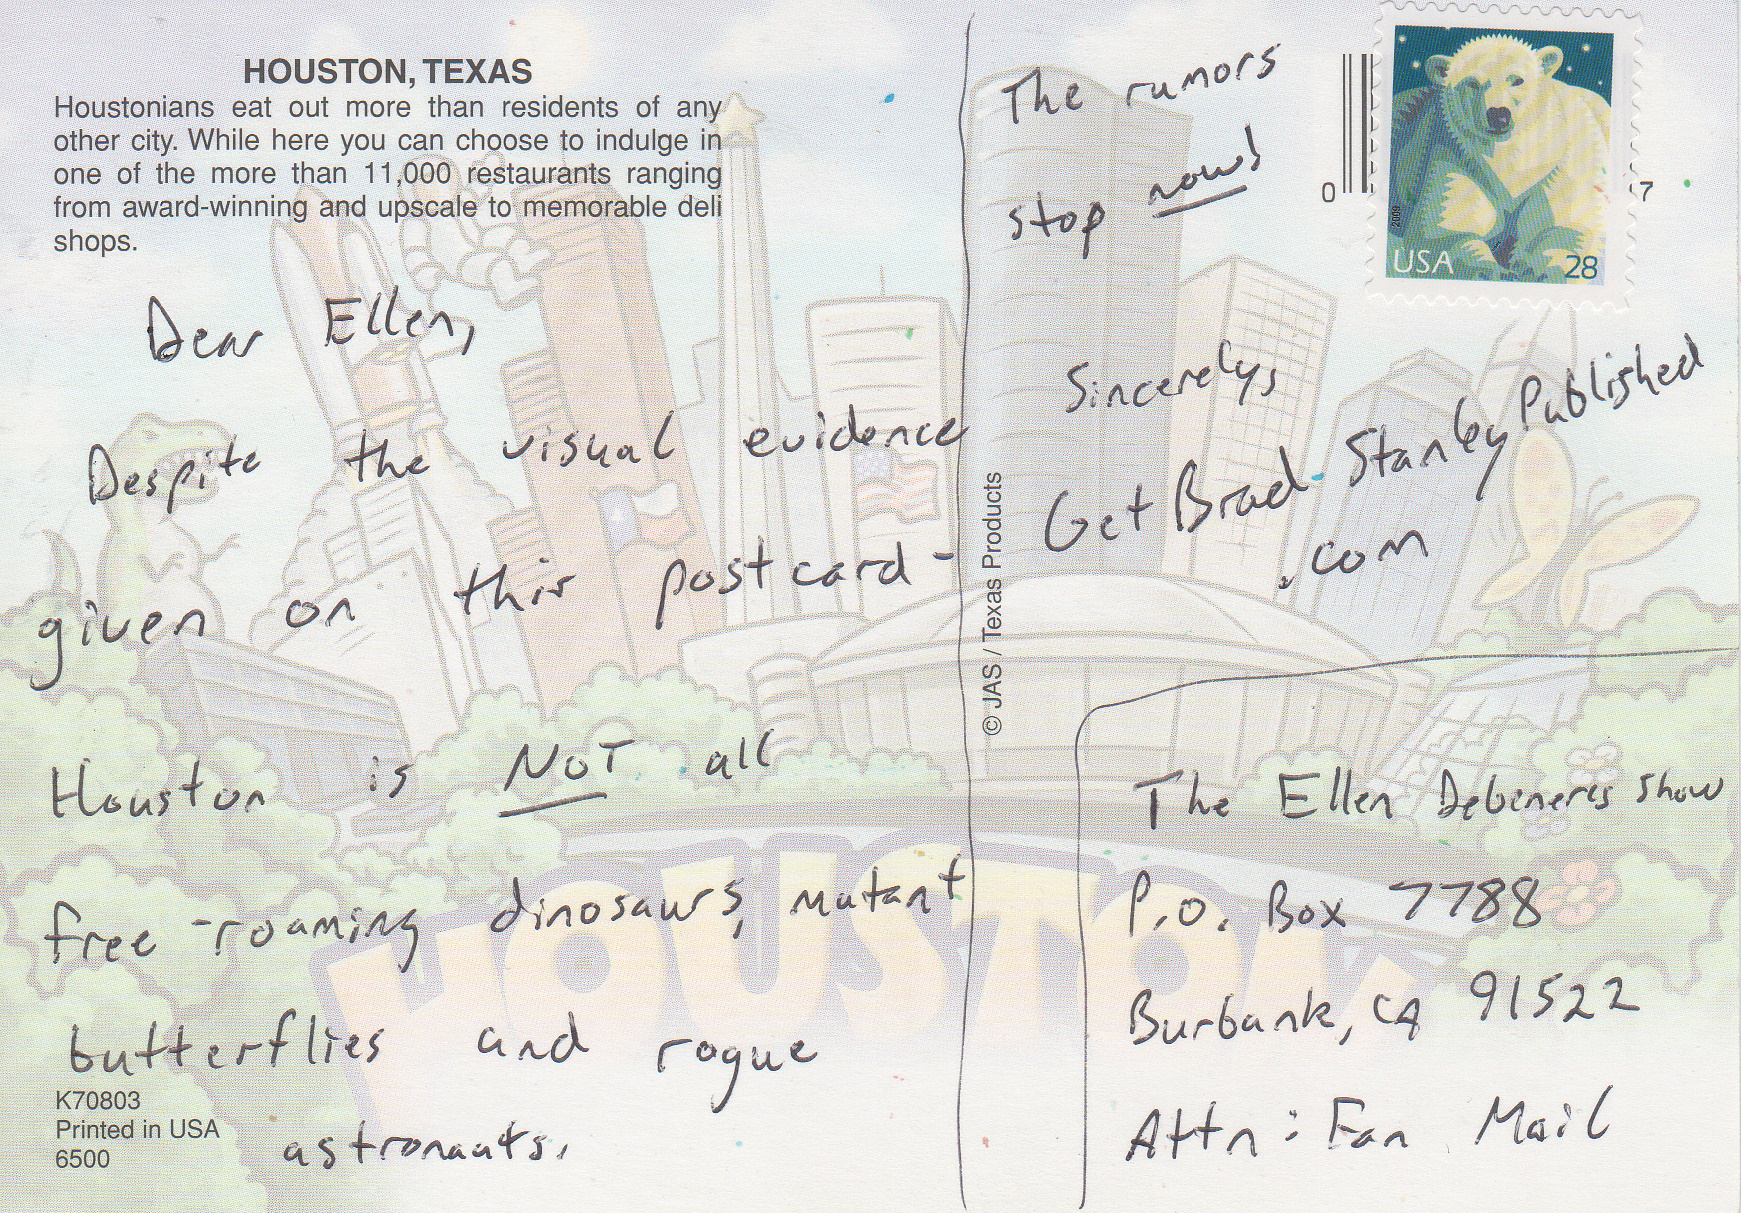 HOUSTON, TEXAS
Houstonians eat out more than residents of any
other city. While here you can choose to indulge in
one of the more than 11,000 restaurants ranging
from award-winning and upscale to memorable deli
shops.
Dear Ellen,
Despite the visual evidence
given on this postcard-
Houston is NOT all
free-roaming dinosaurs, mutant
butterflies and rogue
astronauts.
K70803
Printed in USA
6500
© JAS / Texas Products
The rumors
stop now!
Sincerely,
Get Brad Stanley Published
.com
0 7
2009
USA 28
HOUSTON
The Ellen Debeneres Show
P.O. Box 7788
Burbank, CA 91522
Attn: Fan Mail